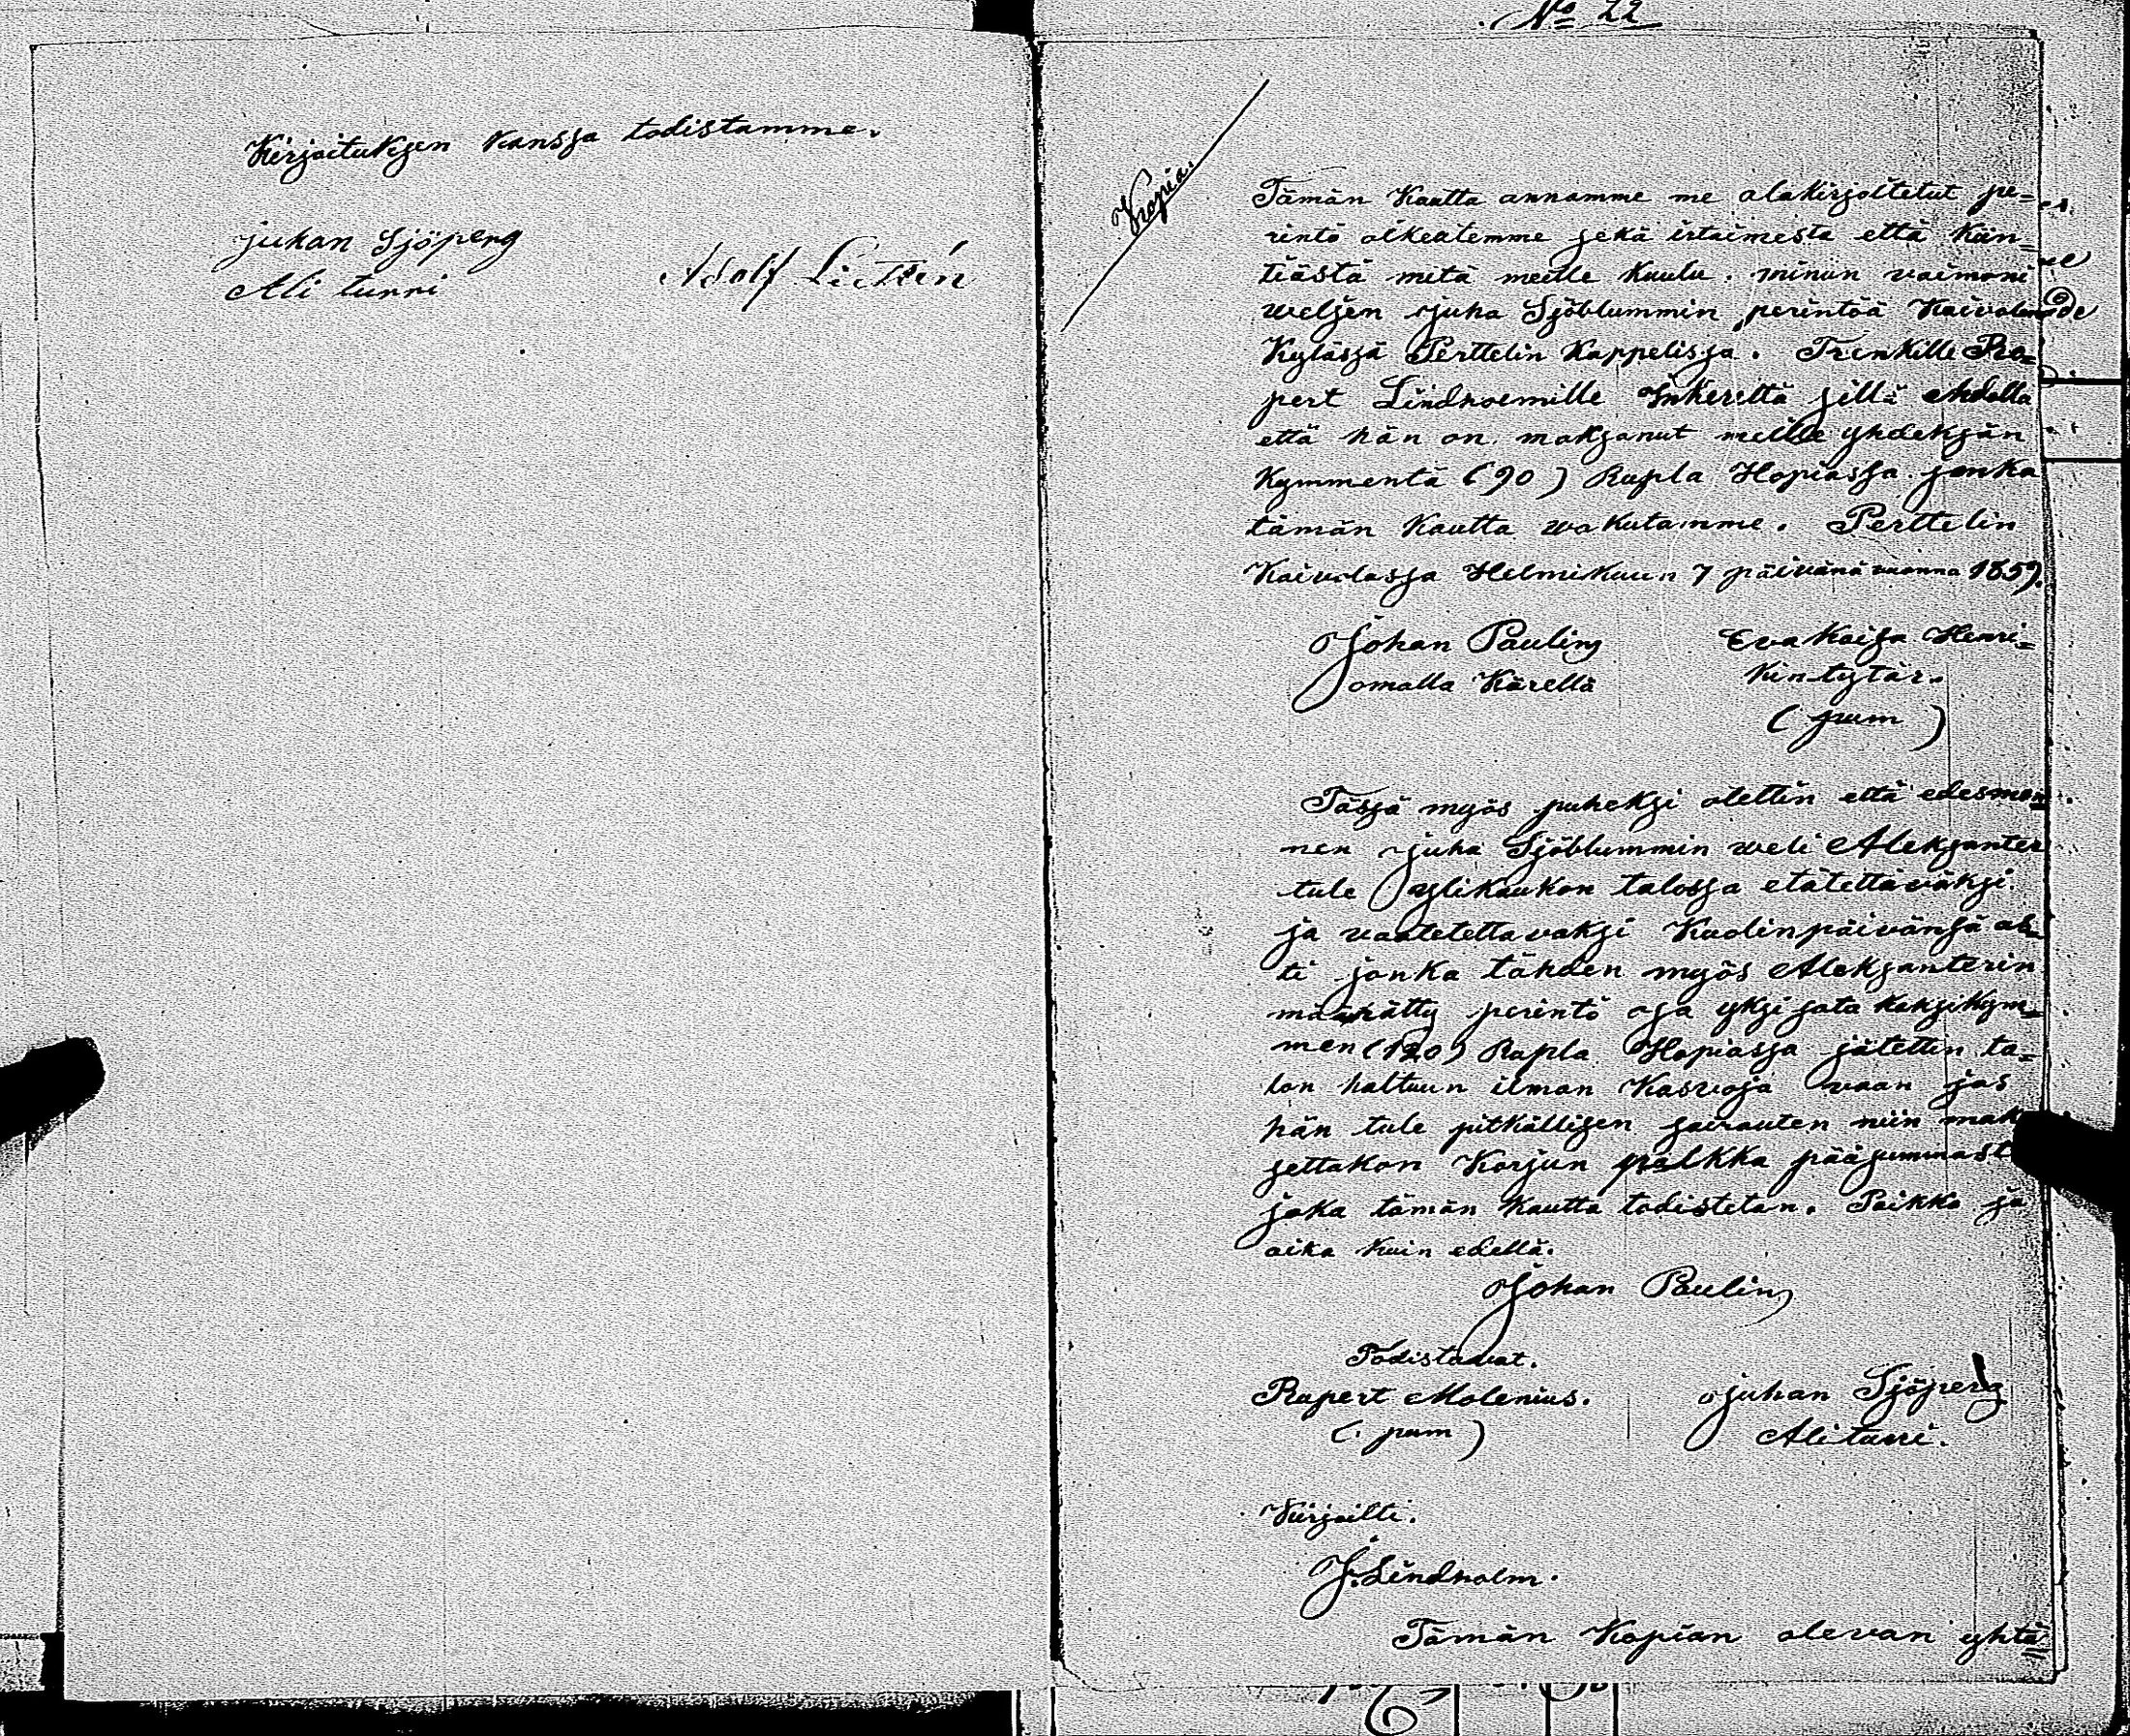 Kirjoituksen kanssa todistamme.
juhan Sjöperg
Ali tunni
Adolf
No 22
Kopia.
Tämän Kautta annamme me alakirjoitetut pe=
rintö oikeutemme sekä irtaimesta että kiin=
tiästä mitä meille kuulu. minun vaimoni
weljen Juha Sjöblummin perintöä Kaivolan
Kylässä Perttelin Kappelissa. Trenkille Ro=
pert Lindhoemille Inkereltä sillä ehdolla
että hän on maksanut meille yhdeksän
Kymmentä (90) Rupla Hopiassa jonka
tämän Kautta wakutamme. Perttelin
Kaivolassa Helmikuun 7 päivänä vuonna 1859.
Johan Pauling
omalla Kärellä
Eva Kaisa Henri=
kin-tytär.
(puum)
Tässä myös puheksi otettin että edesmen
nen Juha Sjöblummin weli Aleksanter
tule Ylikaukon talossa elätettäwäksi
ja vaatetettavaksi Kuolinpäivänsä as
ti jonka tähden myös Aleksanterin
määrätty perintö osa yksi sata kaksikym=
men (120) Rupla Hopiassa jätettin ta=
lon haltuun ilman Kasvoja vaan jos
hän tule pitkällisen sairauten niin mak
settakon Korjun palkka pääsummast
joka tämän Kautta todistetan. Paikka ja
aika kuin edellä.
Johan Pauling
Todistawat.
Rupert Molenius.
(puum)
Juhan Sjöperg
Alitunni.
Kirjoitti.
J. Lindholm.
Tämän Kopian olevan yhtä=